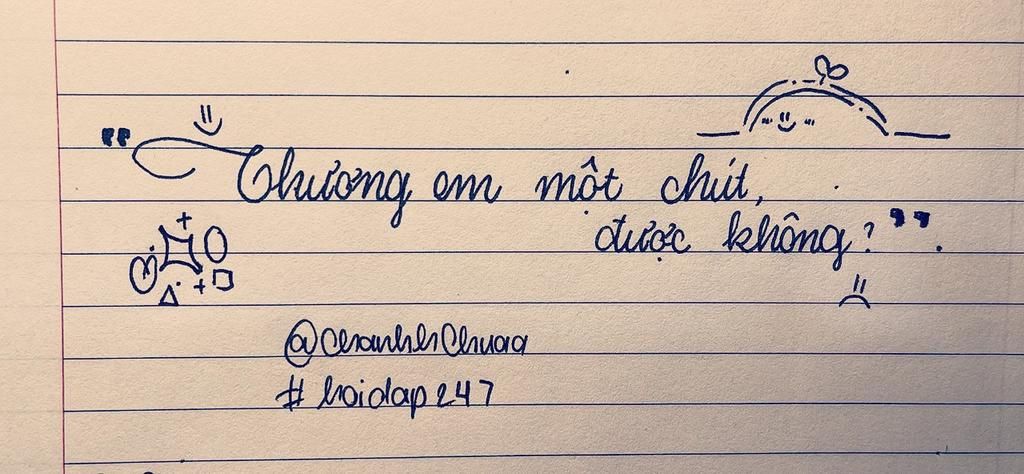 "Thương em một chút,
được không?".
@ChanhhChuaa
#hoidap247